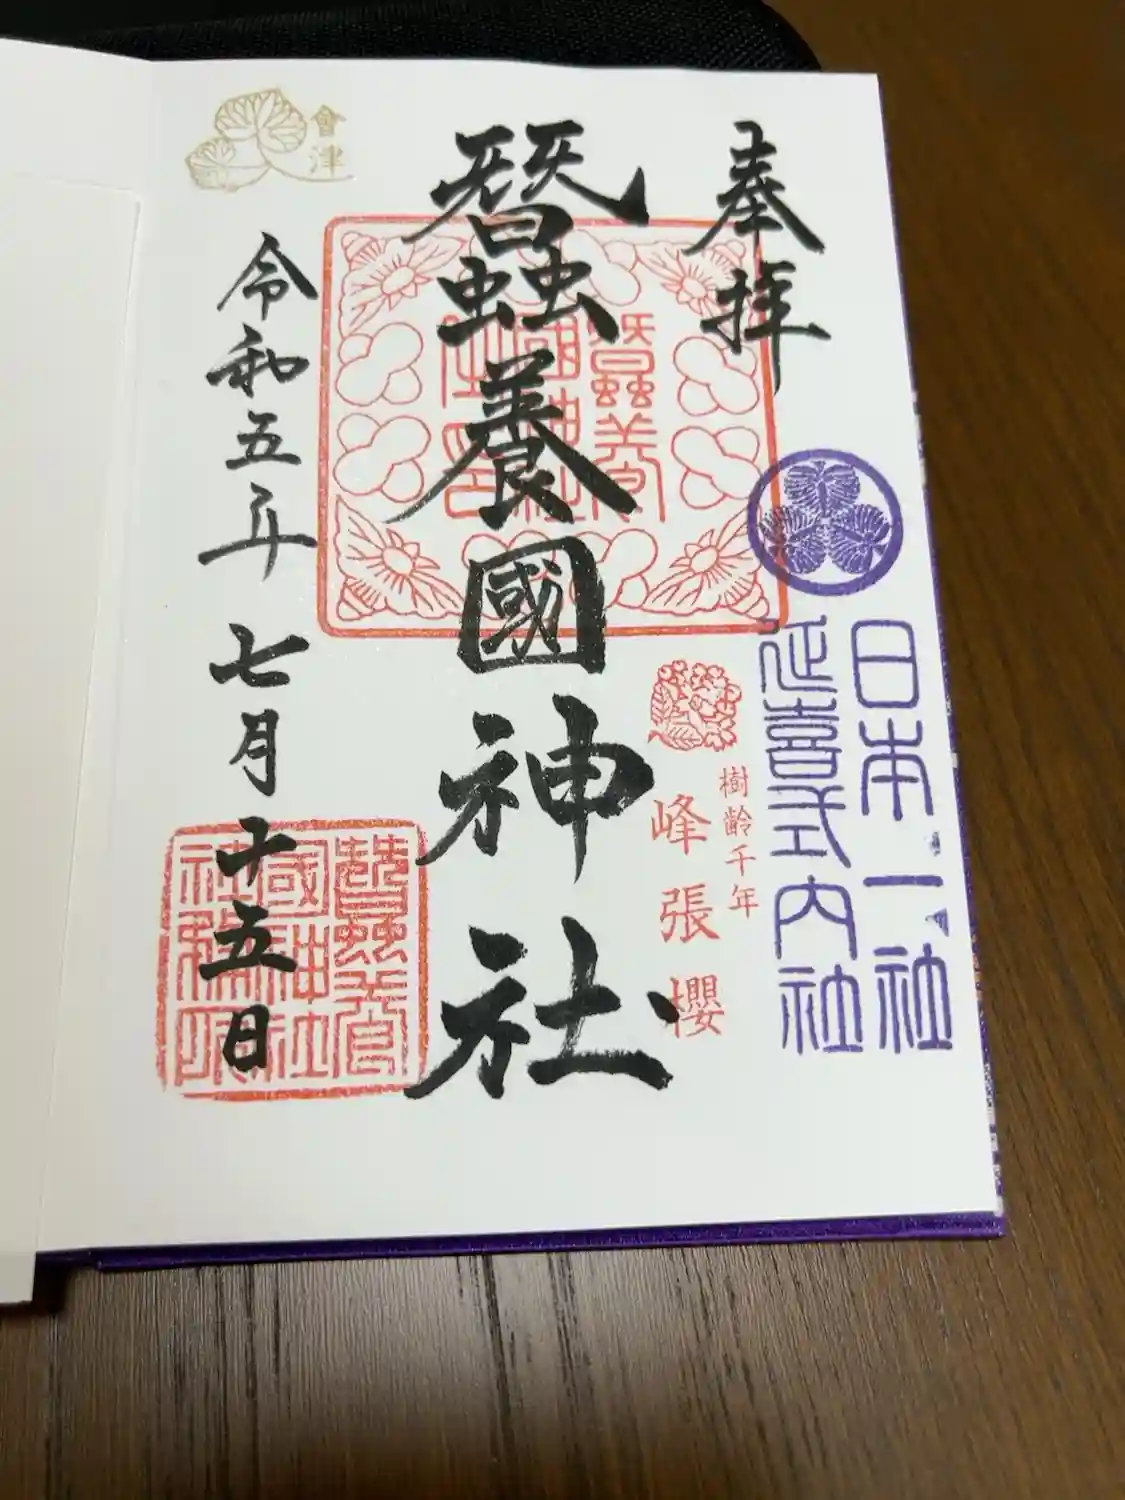 奉拝
日本一社
延喜式内社
樹齢千年
峰張櫻
蠶養國神社
蠶養國神社印
會津
令和五年七月十五日